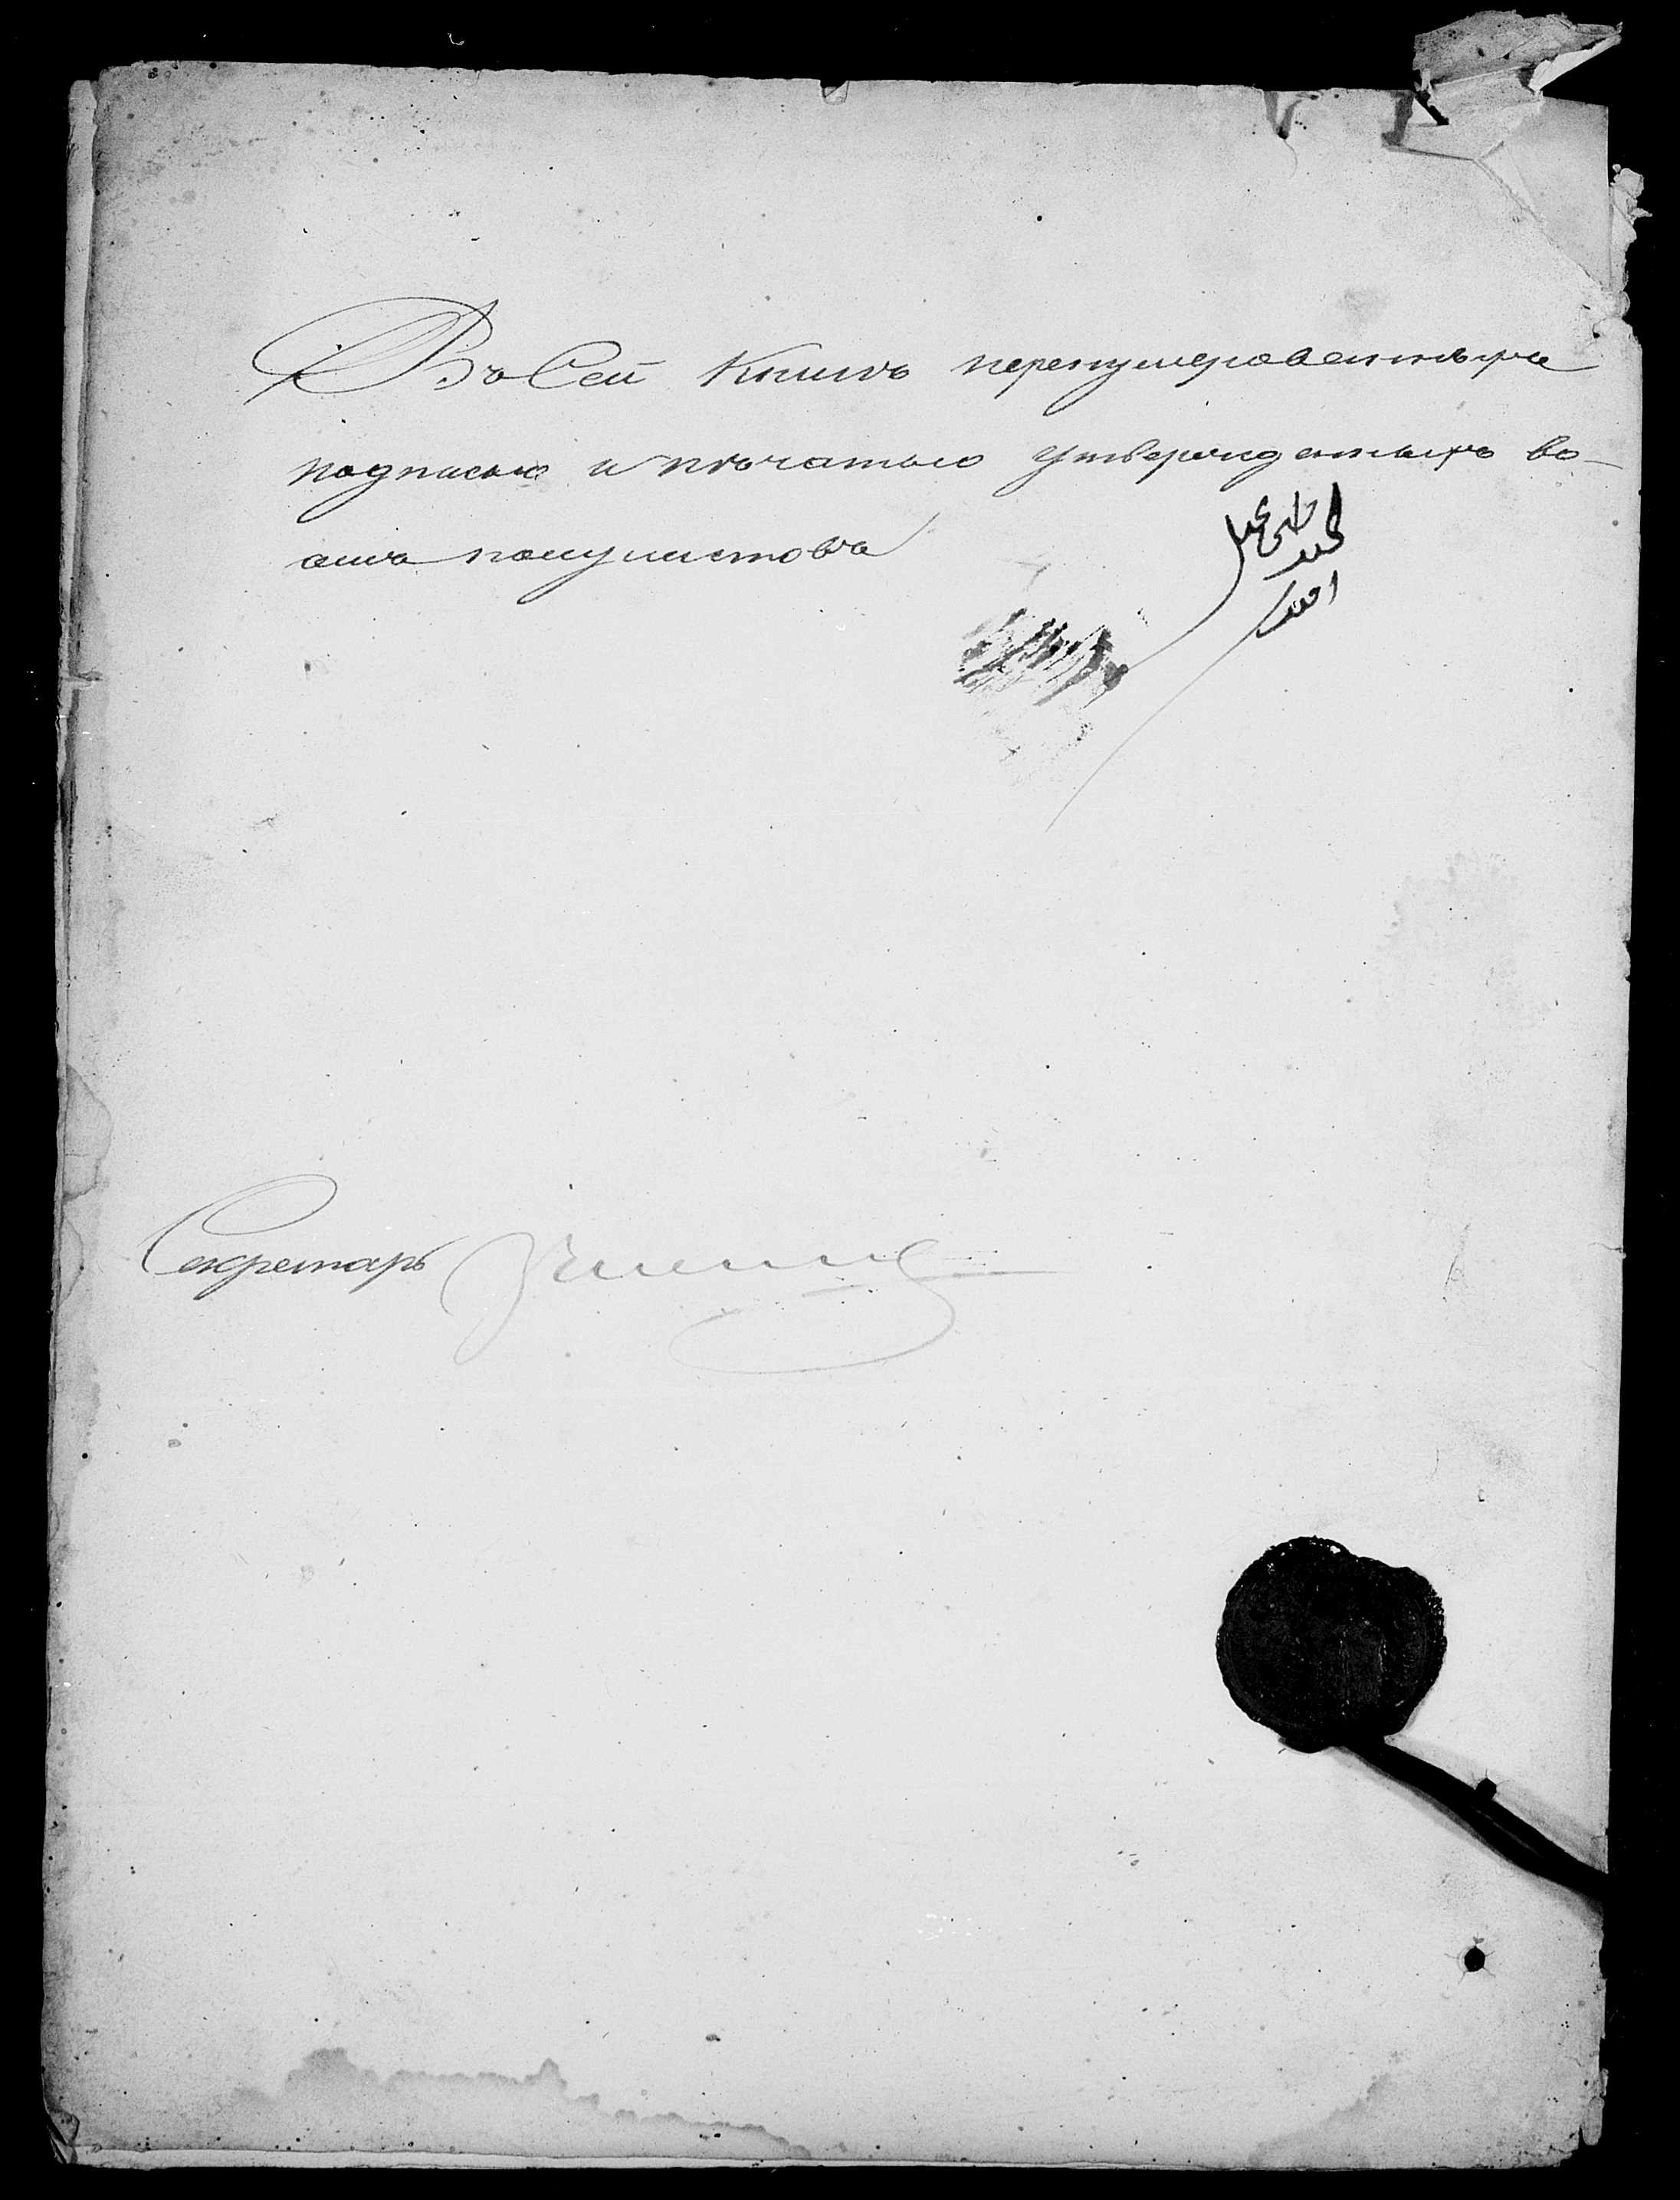 Въ Сей Книгѣ перенумерованныхъ
подписью и печатью утвержденныхъ во-
семь полулистовъ
Секретарь